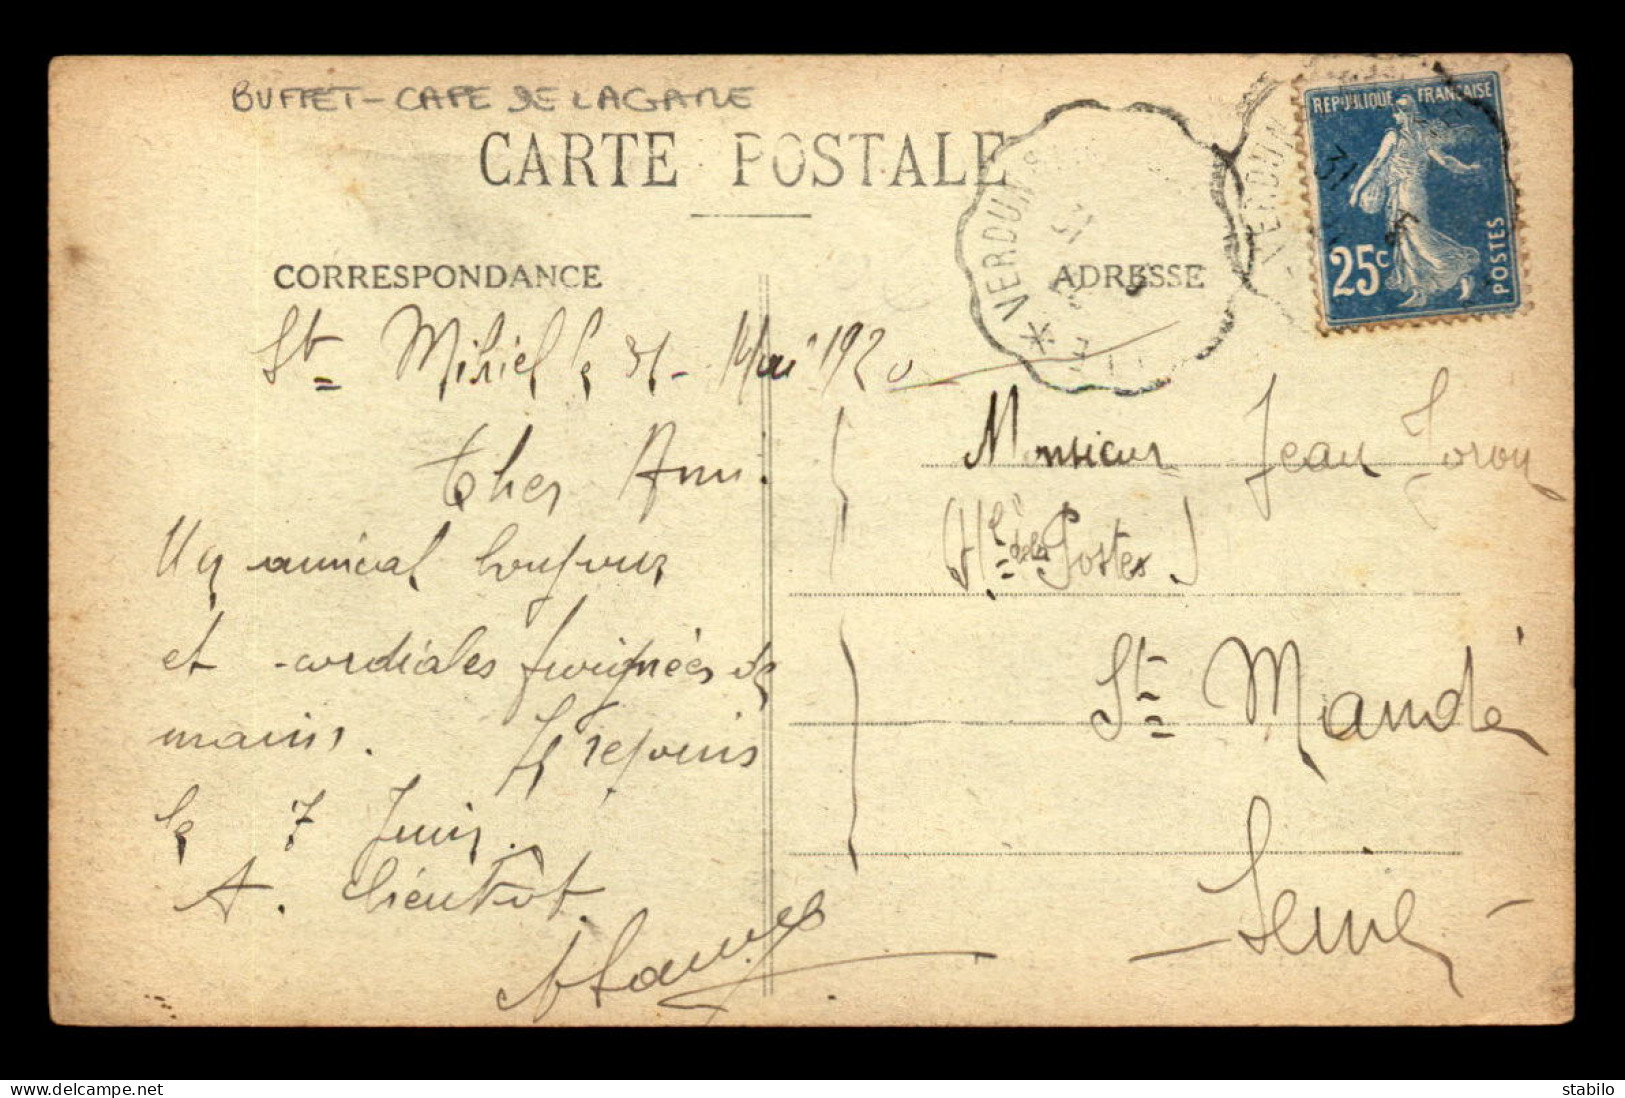 BUFFET-CAFE DE LA GARE
CARTE POSTALE
CORRESPONDANCE
ADRESSE
VERDUN
VERDUN
REPUBLIQUE FRANÇAISE
25c
POSTES
31
St Mihiel le 31 - Mai 1920
Cher Ami.
Un amical bonjour
et cordiales poignées de
mains. Je rejoins
le 7 Juin.
A. bientôt.
Monsieur Jean
(Hl de la Postes)
St Mandé
Seine
www.delcampe.net
stabilo